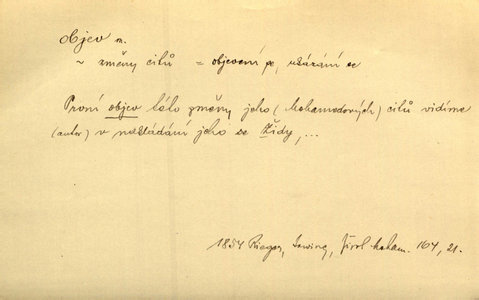 objev m.
~ změny citů = objevení se, ukázání se
První objev této změny jeho (Mohamedových) citů vidíme
(autor) v nakládání jeho se Židy, ...
1854 Rieger, Irwing, Živ. Moham. 164, 21.